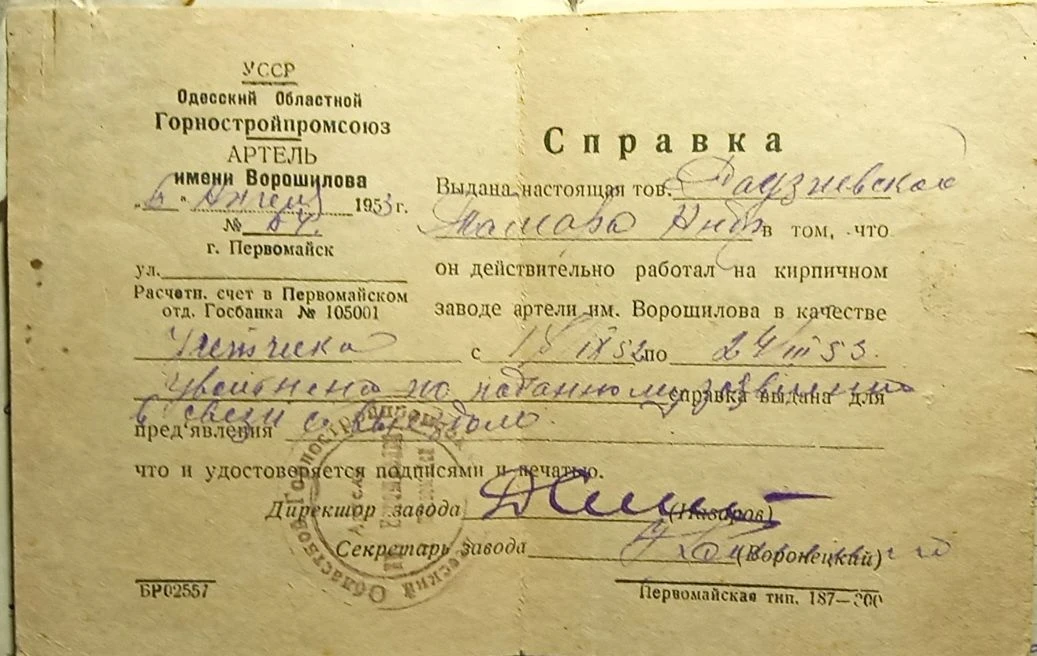 УССР
Одесский Областной
Горностройпромсоюз
АРТЕЛЬ
имени Ворошилова
"6" Апреля 1953 г.
№ 54.
г. Первомайск
ул.
Расчетн. счет в Первомайском
отд. Госбанка № 105001
Справка
Выдана настоящая тов.
Тамара Андр в том, что
он действительно работал на кирпичном
заводе артели им. Ворошилова в качестве
Учетчика с IX 52 по 24 III 53.
Уволнена по поданному заявлению справка выдана для
пред'явления в связи с выездом.
что и удостоверяется подписями и печатью.
Директор завода (Назаров)
Секретарь завода (Воронецкий)
БР02557
Первомайская тип. 187—300